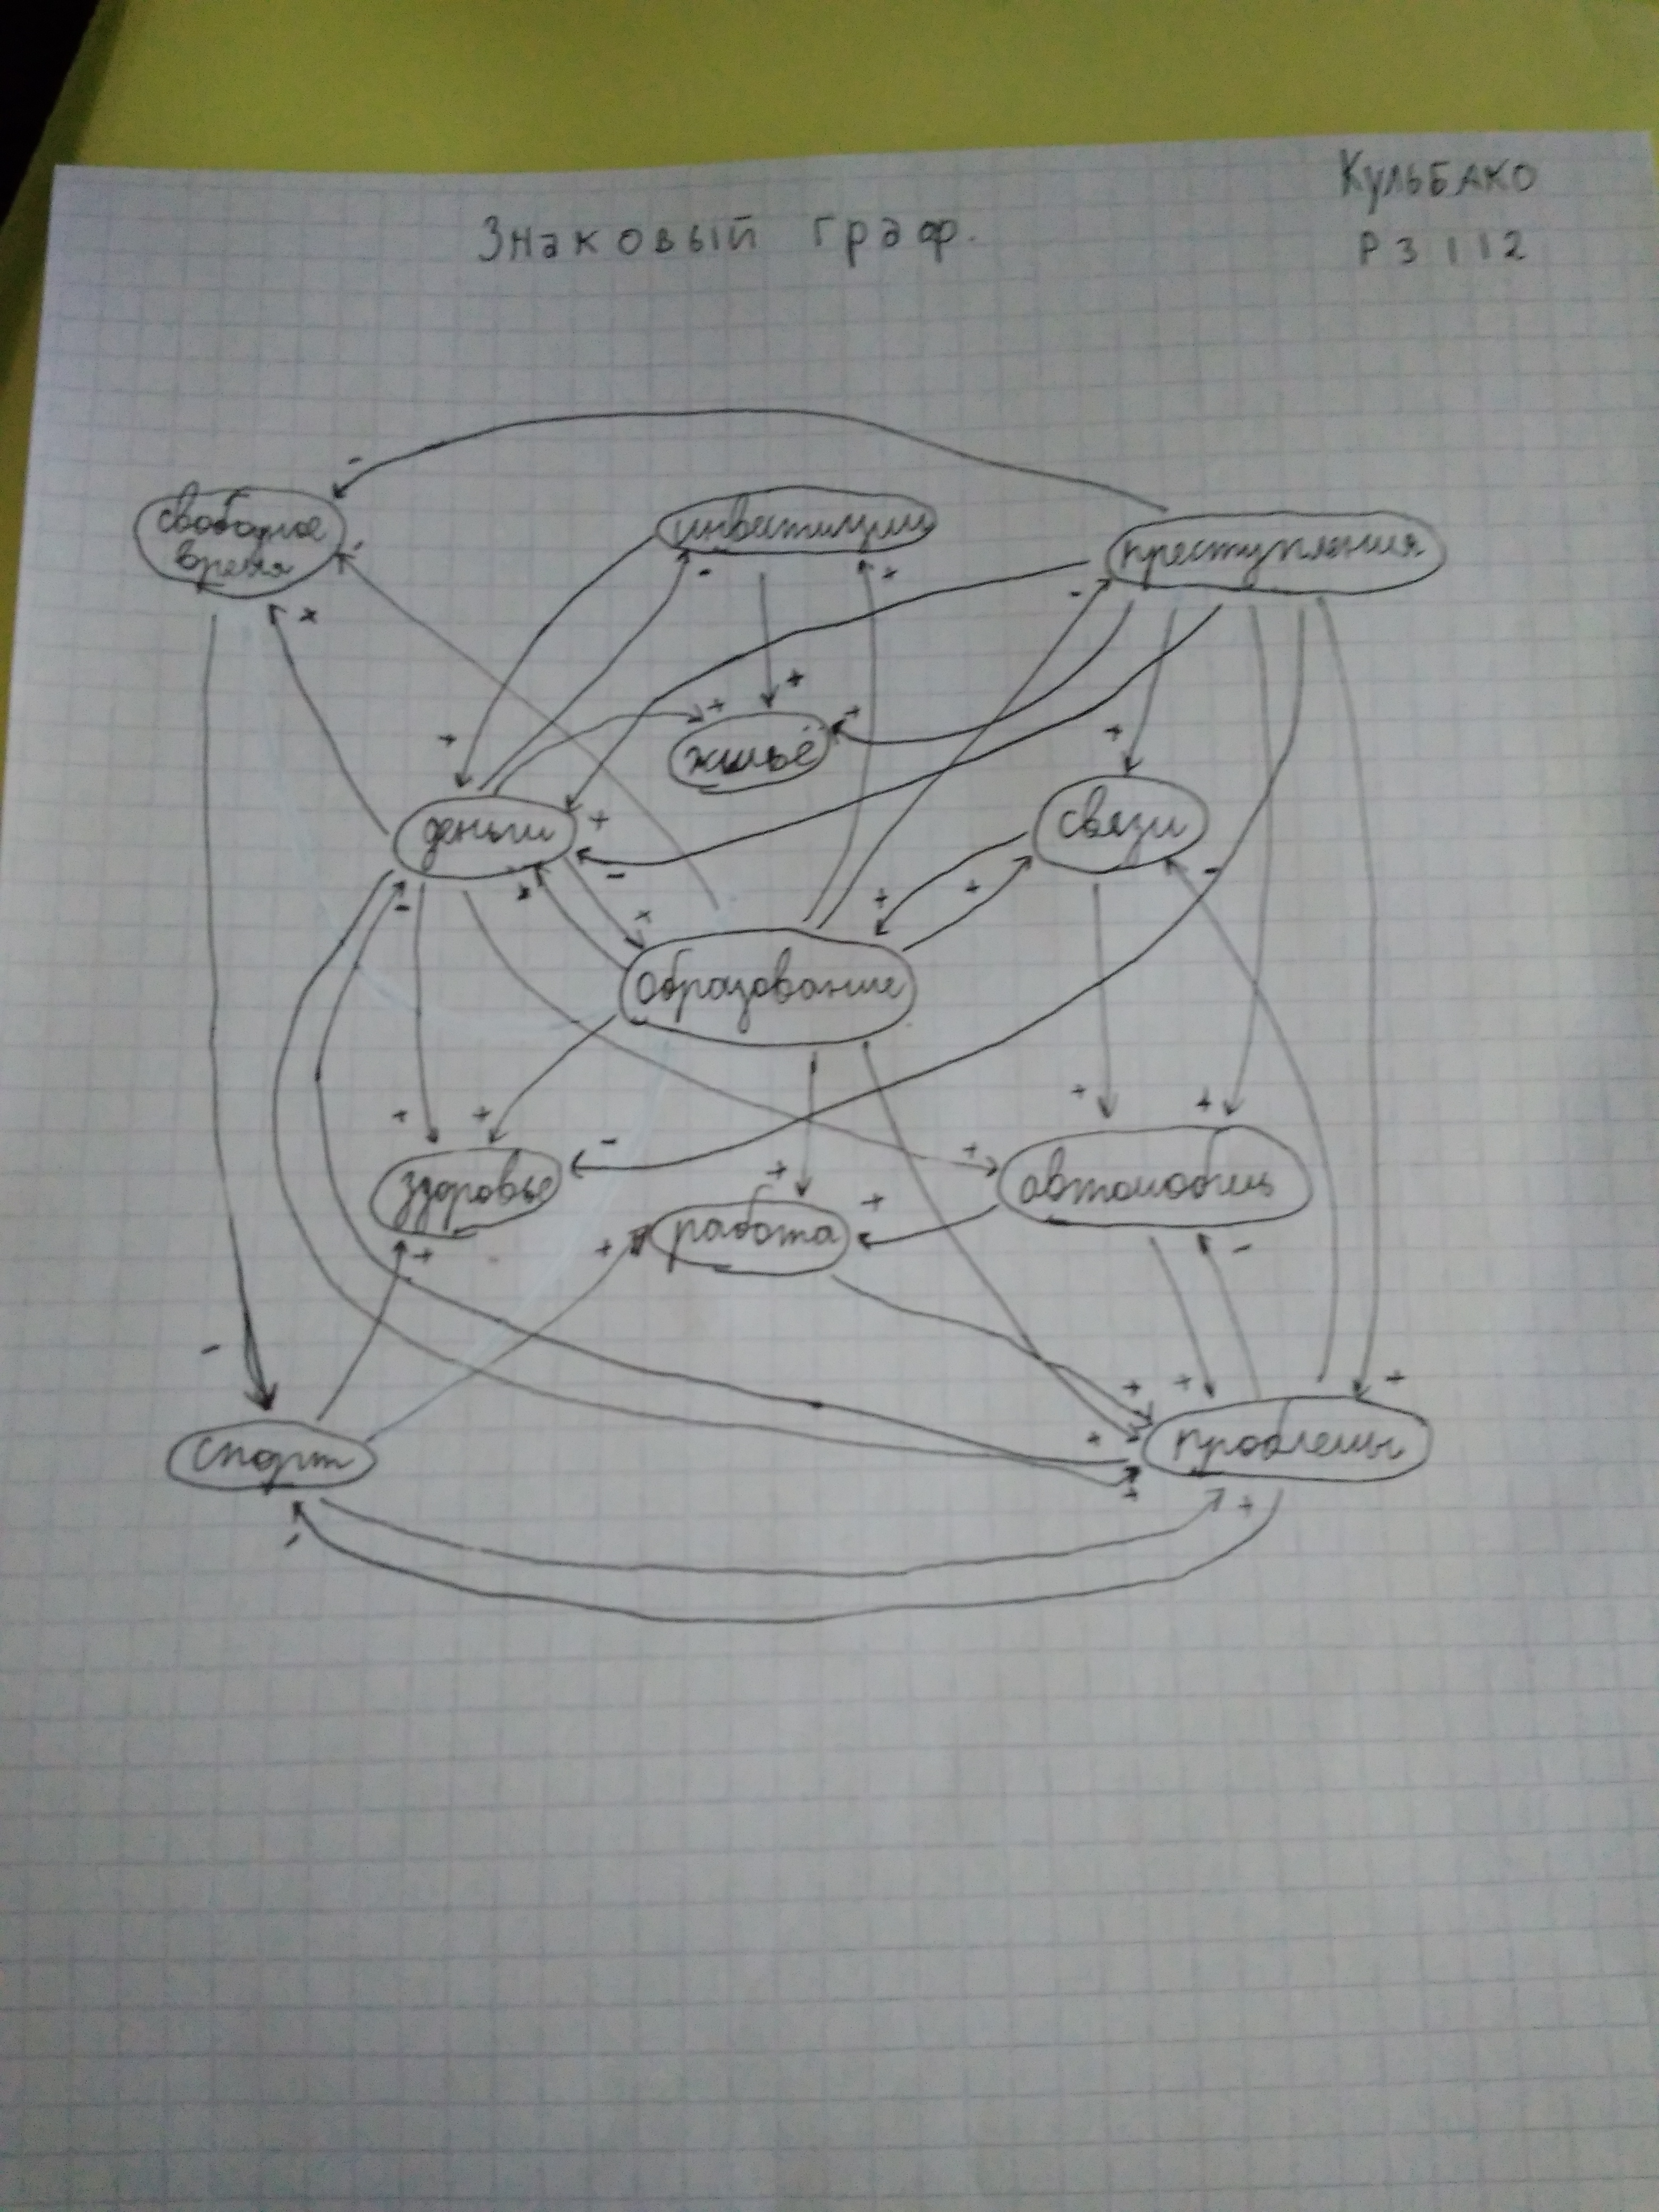 Кульбако
Р3112
Знаковый граф.
свободное
время
инвестиции
преступления
жильё
деньги
связи
образование
здоровье
работа
автомобиль
спорт
проблемы